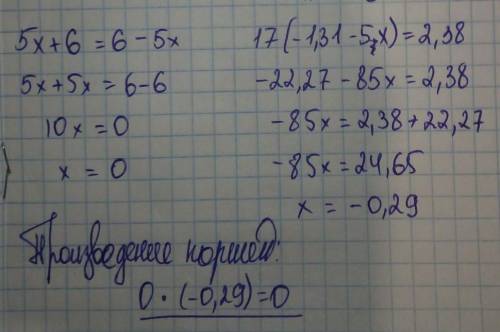 5x+6=6-5x
5x+5x=6-6
10x=0
x=0
17(-1,31-5x)=2,38
-22,27-85x=2,38
-85x=2,38+22,27
-85x=24,65
x=-0,29
Произведение корней:
0·(-0,29)=0